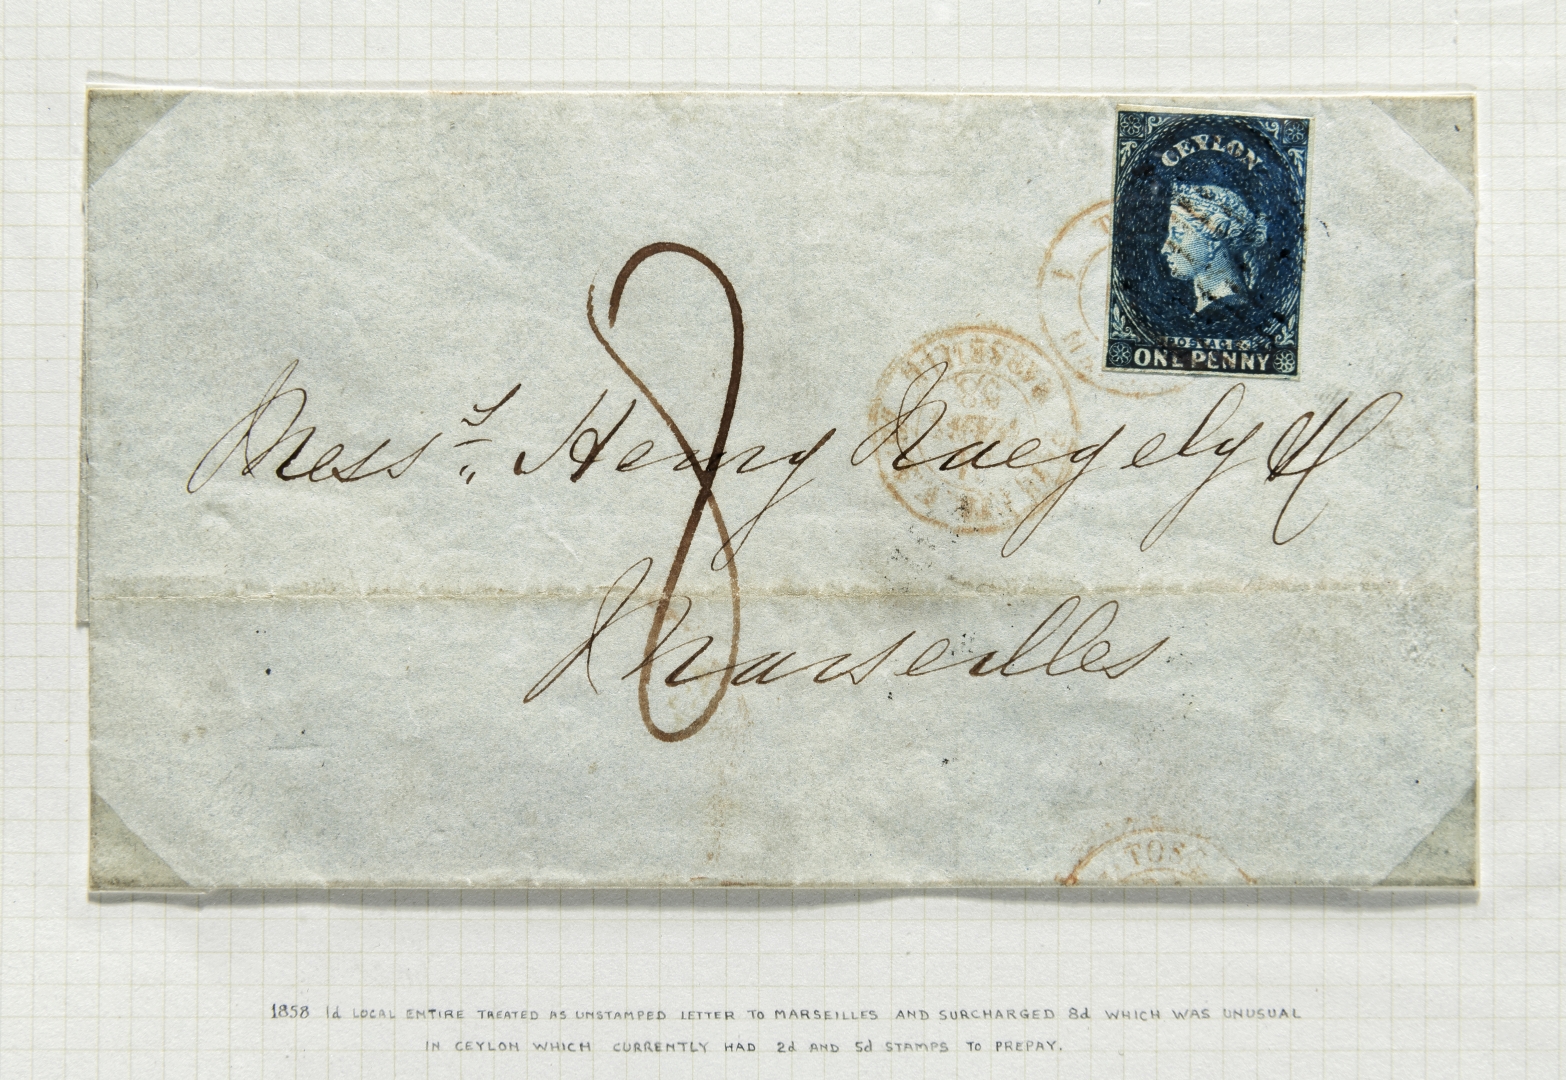 CEYLON
POSTAGE
ONE PENNY
8
Mess.rs Henry Naegely &
Marseilles
TOS
1858 1d LOCAL ENTIRE TREATED AS UNSTAMPED LETTER TO MARSEILLES AND SURCHARGED 8d WHICH WAS UNUSUAL
IN CEYLON WHICH CURRENTLY HAD 2d AND 5d STAMPS TO PREPAY.